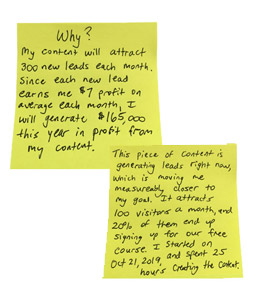 Why?
My content will attract
300 new leads each month.
Since each new lead
earns me $7 profit on
average each month, I
will generate $165,000
this year in profit from
my content.
This piece of content is
generating leads right now,
which is moving me
measureably closer to
my goal. It attracts
100 visitors a month, and
20% of them end up
signing up for our free
course. I started on
Oct 21, 2019, and spent 25
hours creating the content.